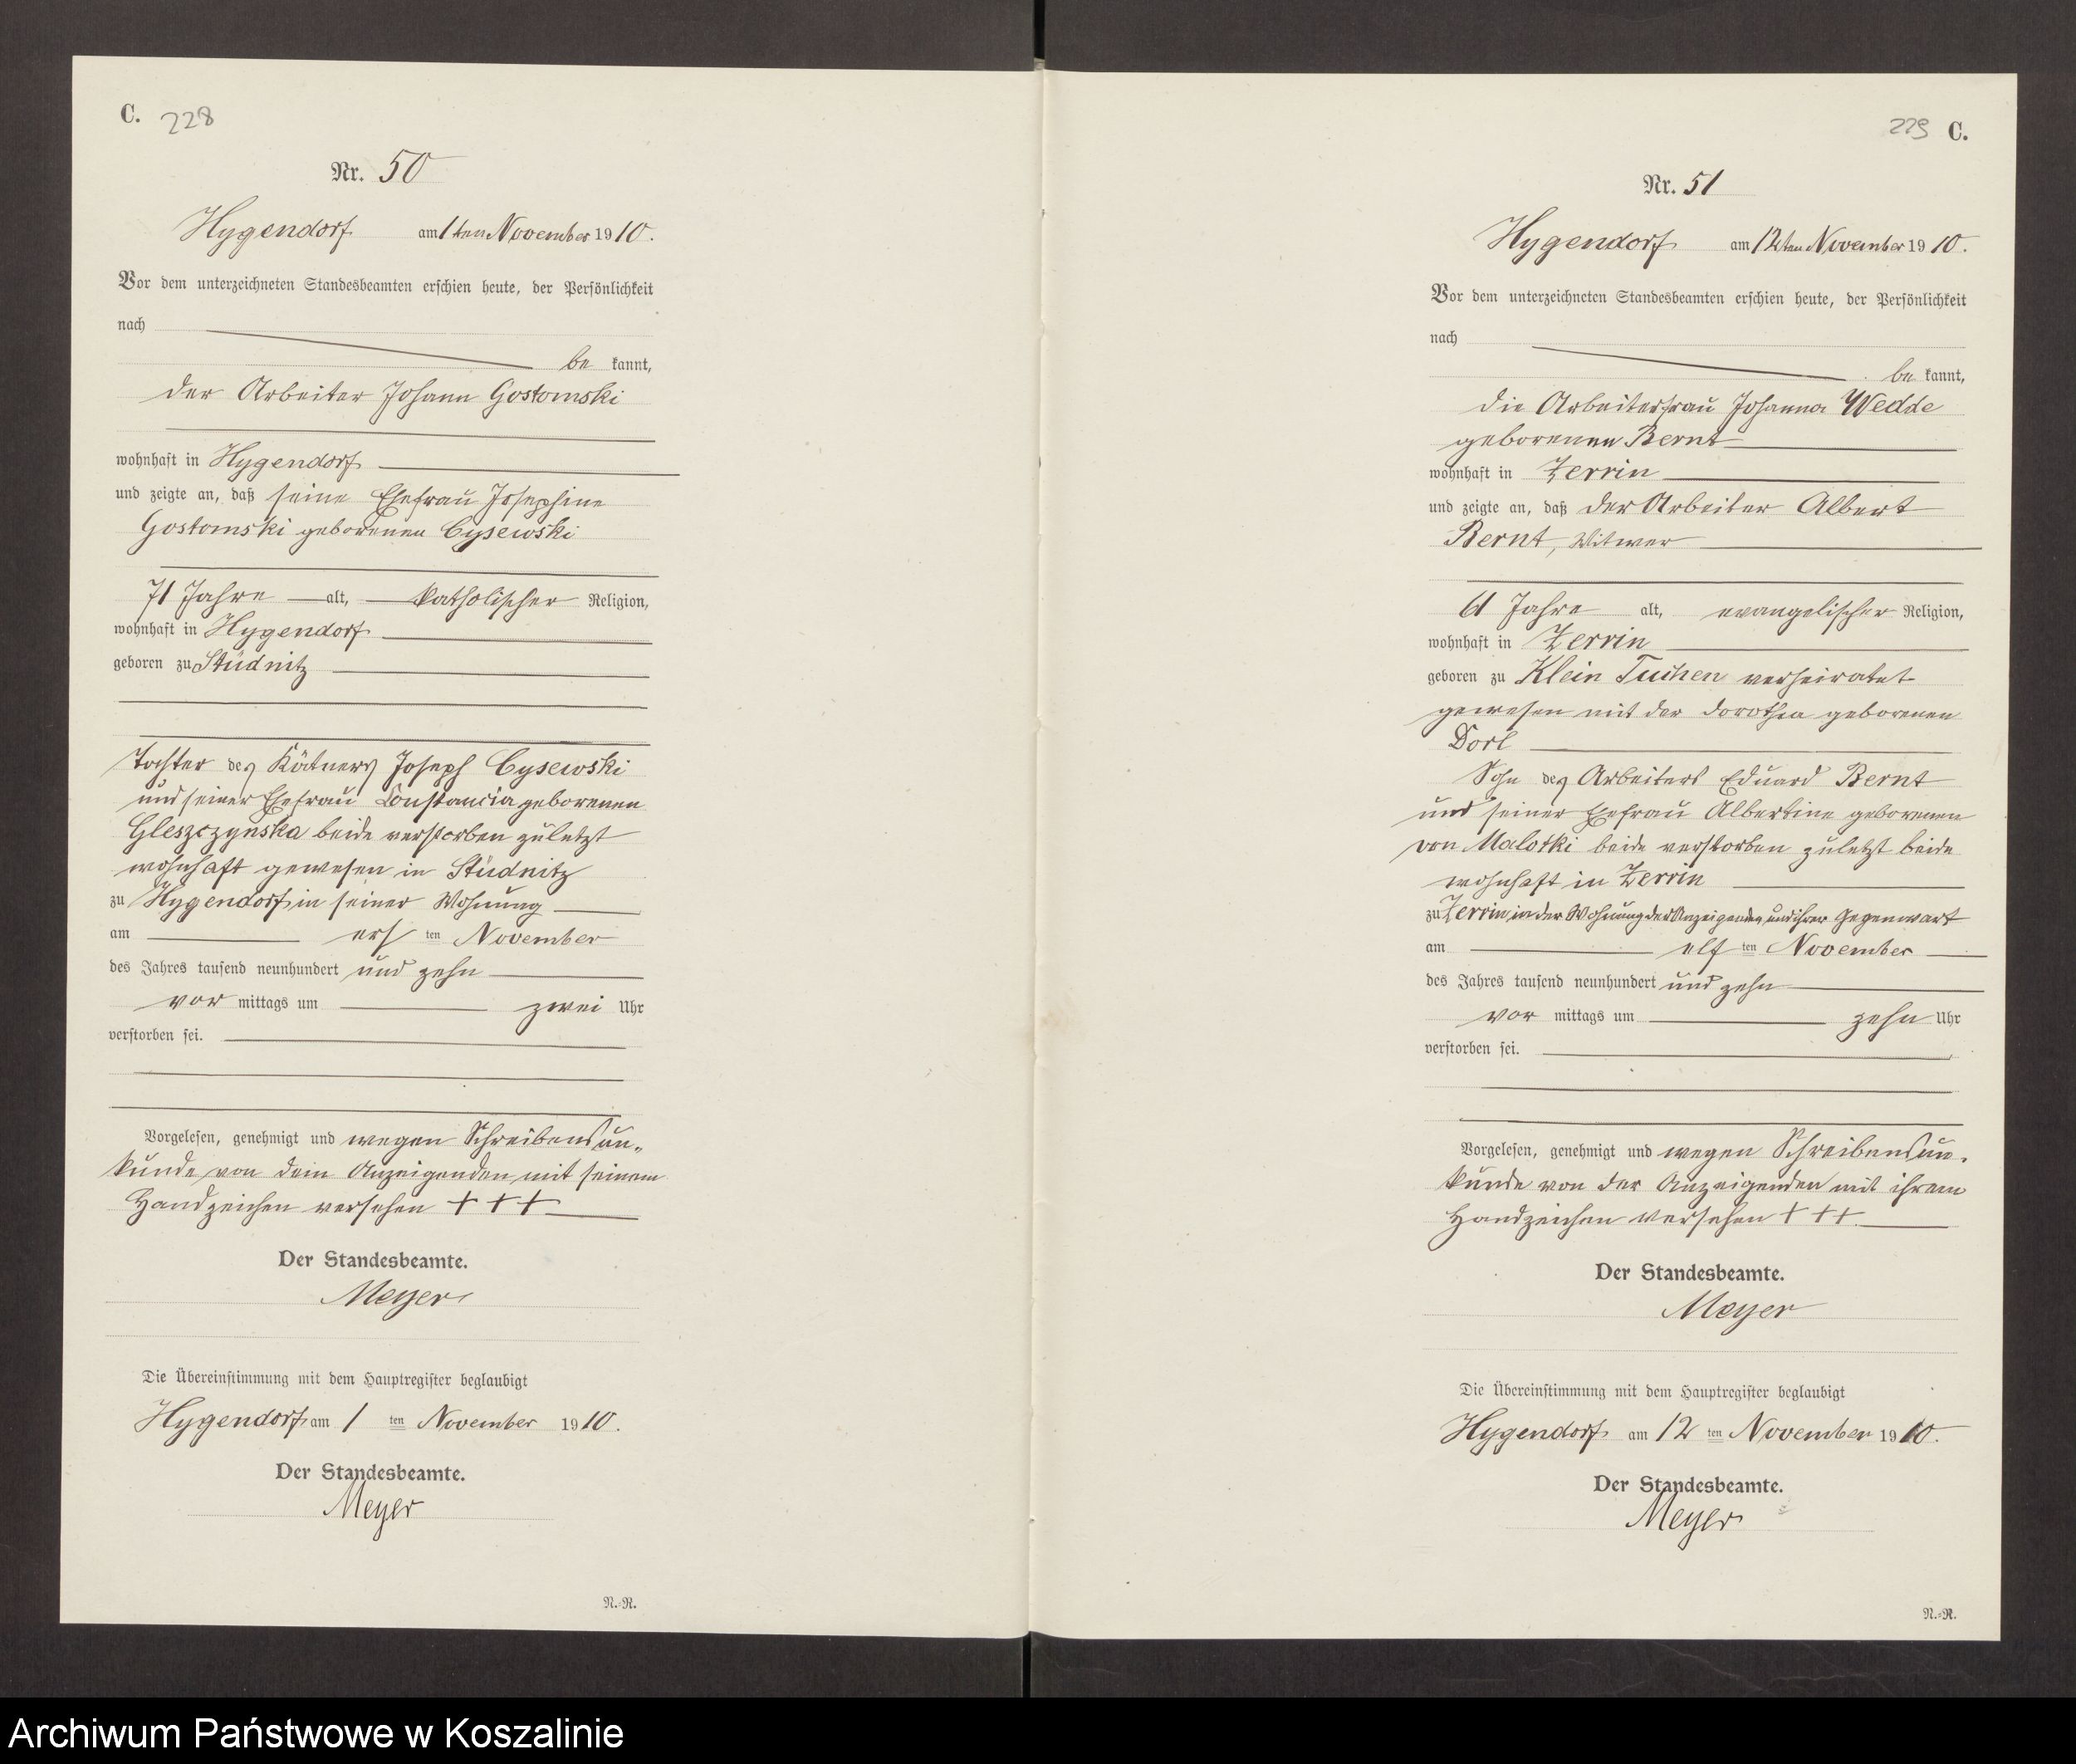 C. 228
Nr. 50
Hygendorf am 1ten November 1910.
Vor dem unterzeichneten Standesbeamten erschien heute, der Persönlichkeit
nach
be kannt,
der Arbeiter Johann Gostomski
wohnhaft in Hygendorf
und zeigte an, daß seine Ehefrau Josephine
Gostomski geborenen Cysewski
71 Jahre alt, katholischer Religion,
wohnhaft in Hygendorf
geboren zu Stüdnitz
Tochter des Kätners Joseph Cysewski
und seiner Ehefrau Constancia geborenen
Gleszczynska beide verstorben zuletzt
wohnhaft gewesen in Stüdnitz
zu Hygendorf in seiner Wohnung
am ersten November
des Jahres tausend neunhundert und zehn
vor mittags um zwei Uhr
verstorben sei.
Vorgelesen, genehmigt und wegen Schreibensun-
kunde von dem Anzeigenden mit seinem
Handzeichen versehen + + +
Der Standesbeamte.
Meyer
Die Übereinstimmung mit dem Hauptregister beglaubigt
Hygendorf am 1 ten November 1910.
Der Standesbeamte.
Meyer
N.-R.
229 C.
Nr. 51
Hygendorf am 12ten November 1910.
Vor dem unterzeichneten Standesbeamten erschien heute, der Persönlichkeit
nach
be kannt,
die Arbeiterfrau Johanna Wedde
geborenen Bernt
wohnhaft in Zerrin
und zeigte an, daß der Arbeiter Albert
Bernt, Witwer
61 Jahre alt, evangelischer Religion,
wohnhaft in Zerrin
geboren zu Klein Tuchen verheiratet
gewesen mit der Dorothea geborenen
Dorl
Sohn des Arbeiters Eduard Bernt
und seiner Ehefrau Albertine geborenen
von Malotki beide verstorben zuletzt beide
wohnhaft in Zerrin
zu Zerrin in der Wohnung der Anzeigenden und ihrer Gegenwart
am elf ten November
des Jahres tausend neunhundert und zehn
vor mittags um zehn Uhr
verstorben sei.
Vorgelesen, genehmigt und wegen Schreibensun-
kunde von der Anzeigenden mit ihrem
Handzeichen versehen + + +
Der Standesbeamte.
Meyer
Die Übereinstimmung mit dem Hauptregister beglaubigt
Hygendorf am 12 ten November 1910.
Der Standesbeamte.
Meyer
N.-R.
Archiwum Państwowe w Koszalinie